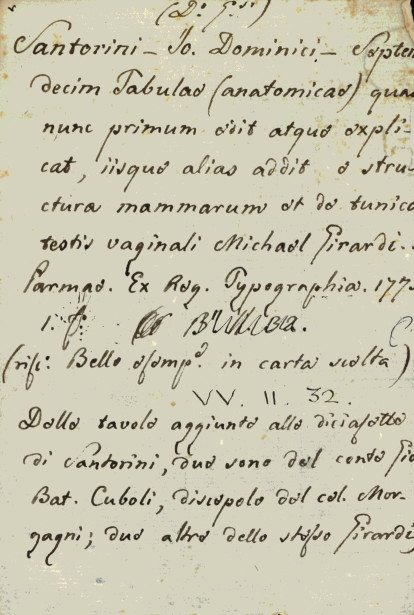 (D.º G.sii)
Santorini - Jo. Dominici - Septem
decim Tabulae (anatomicae) quas
nunc primum edit atque expli-
cat, iisque alias addit e stru-
ctura mammarum et de tunica
testis vaginali Michael Girardi.
Parmae. Ex Reg. Typographia. 177
1. f:
(rif: Bello esemp.º in carta scelta)
VV. 11. 32.
Delle tavole aggiunte alle diciasette
di Santorini, due sono del conte Gio
Bat. Cuboli, discepolo del cel. Mor-
gagni; due altre dello stesso Girardi